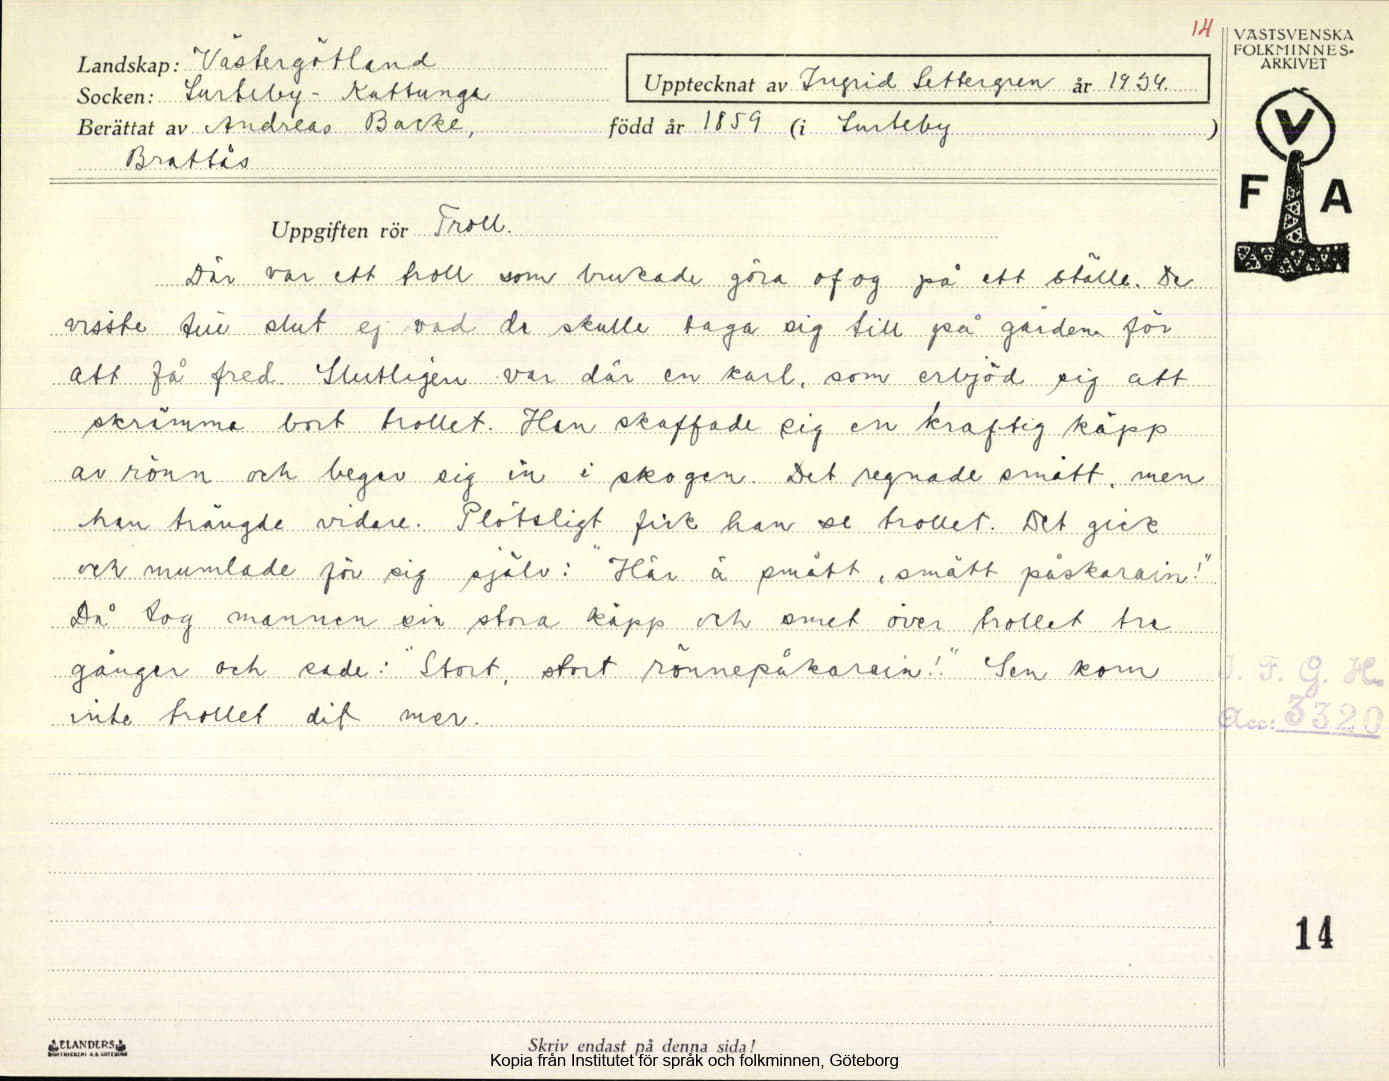 14
VÄSTSVENSKA
FOLKMINNES-
ARKIVET
Landskap: Västergötland
Socken: Surteby - Kattunga
Upptecknat av Ingrid Settergren år 1934.
Berättat av Andreas Backe, född år 1859 (i Surteby )
Brattås
V
F A
Uppgiften rör Troll.
Där var ett troll som brukade göra ofog på ett ställe. De
visste till slut ej vad de skulle taga sig till på gården för
att få fred. Slutligen var där en karl, som erbjöd sig att
skrämma bort trollet. Han skaffade sig en kraftig käpp
av rönn och begav sig in i skogen. Det regnade smått, men
han trängde vidare. Plötsligt fick han se trollet. Det gick
och mumlade för sig själv: "Här ä smått, smått påskarain!"
Då tog mannen sin stora käpp och smet över trollet tre
gånger och sade: "Stort, stort rönnepåkarain!" Sen kom
inte trollet dit mer.
I. F. G. H.
Acc: 3320
14
ELANDERS
BOKTRYCKERI A.B. GÖTEBORG
Skriv endast på denna sida!
Kopia från Institutet för språk och folkminnen, Göteborg